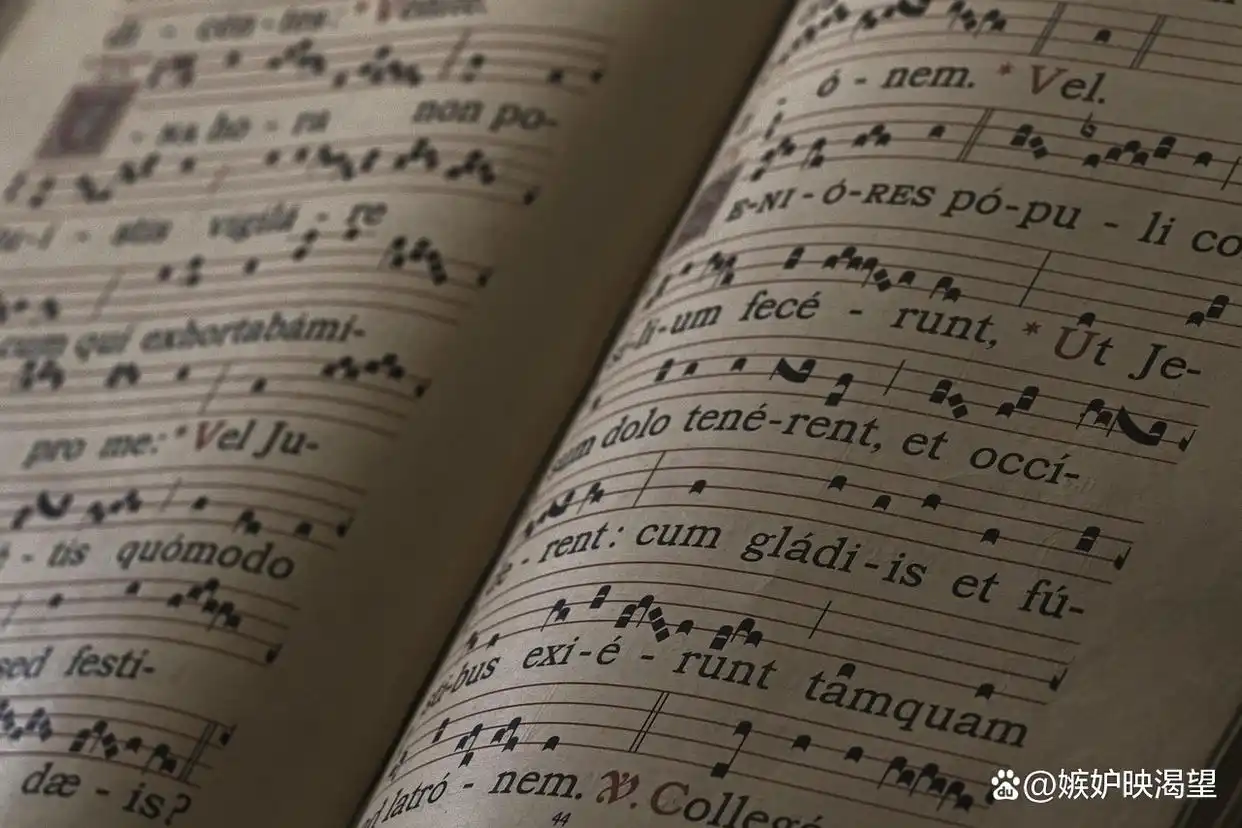 di - cen - tes: * Venite.
U - na ho - ra non po-
tu-í - stis vigilá - re
cum qui exhortabámi-
pro me: * Vel Ju-
- tis quómodo
sed festi-
dæ - is?
ó - nem. * Vel.
E-NI - Ó-RES pó-pu - li co
si-li-um fecé - runt, * Ut Je-
sum dolo tené-rent, et occí-
de - rent: cum gládi-is et fú-
sti-bus exi-é - runt tamquam
ad latró - nem. ℣. Collegé
44
@嫉妒映渴望